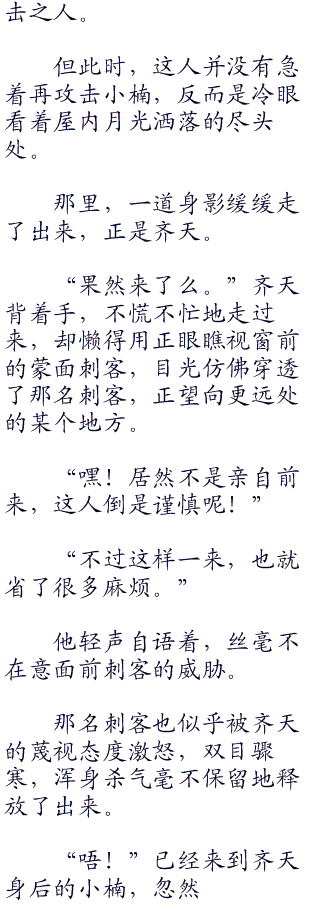 击之人。
但此时，这人并没有急
着再攻击小楠，反而是冷眼
看着屋内月光洒落的尽头
处。
那里，一道身影缓缓走
了出来，正是齐天。
“果然来了么。”齐天
背着手，不慌不忙地走过
来，却懒得用正眼瞧视窗前
的蒙面刺客，目光仿佛穿透
了那名刺客，正望向更远处
的某个地方。
“嘿！居然不是亲自前
来，这人倒是谨慎呢！”
“不过这样一来，也就
省了很多麻烦。”
他轻声自语着，丝毫不
在意面前刺客的威胁。
那名刺客也似乎被齐天
的蔑视态度激怒，双目骤
寒，浑身杀气毫不保留地释
放了出来。
“唔！”已经来到齐天
身后的小楠，忽然